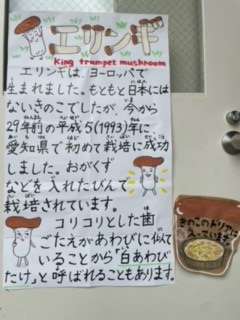 エリンギ
King trumpet mushroom
エリンギは、ヨーロッパで
生まれました。もともと日本には
ないきのこでしたが、今から
29年前の平成5(1993)年に
愛知県で初めて栽培に成功
しました。おがくず
などを入れたびんで
栽培されています。
コリコリとした歯
ごたえがあわびに似て
いることから「白あわび
たけ」と呼ばれることもあります。
きのこのドリアに
入っています